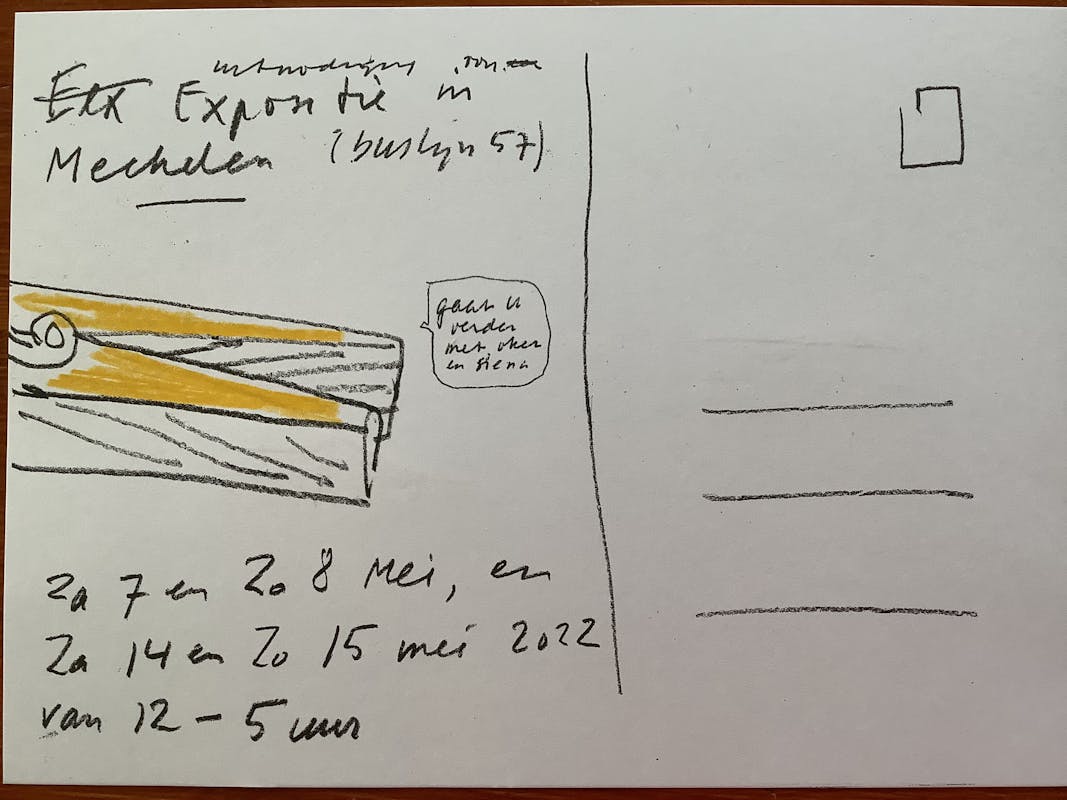 uitnodiging
Expositie in
Mechelen (buslijn 57)
gaat u
verder
met oker
en siena
Za 7 en Zo 8 Mei, en
Za 14 en Zo 15 mei 2022
van 12 - 5 uur